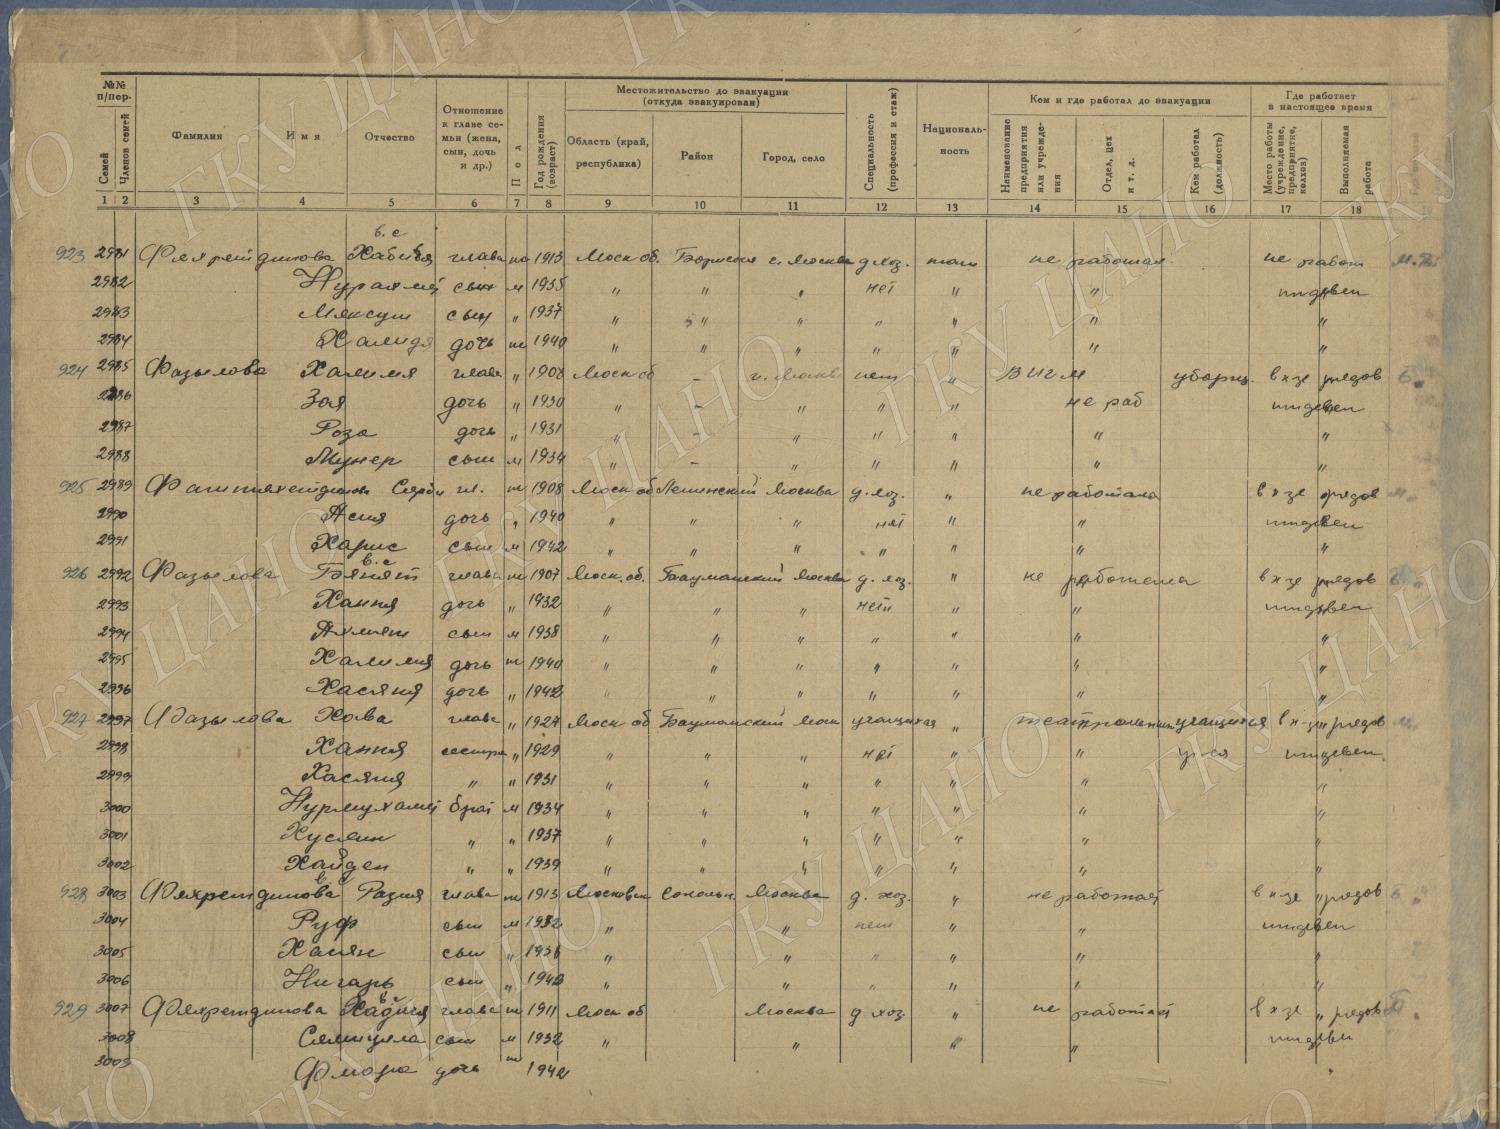 №№ п/пор.
Семей
Членов семей
Фамилия
Имя
Отчество
Отношение к главе семьи (жена, сын, дочь и др.)
Пол
Год рождения (возраст)
Местожительство до эвакуации (откуда эвакуирован)
Область (край, республика)
Район
Город, село
Специальность (профессия и стаж)
Националь-ность
Кем и где работал до эвакуации
Наименование предприятия или учрежде-ния
Отдел, цех и т. д.
Кем работал (должность)
Где работает в настоящее время
Место работы (учреждение, предприятие, колхоз)
Выполняемая работа
1 2 3 4 5 6 7 8 9 10 11 12 13 14 15 16 17 18
в. с
923 2981 Фяхретдинова глава 1913 Моск об. г. Москва д.хоз. не работал не работ
2982 сын м 1935 " " " нет " " иждивен
2983 Мяксум сын " 1937 " " " " " " "
2984 Халидя дочь 1940 " " " " " " "
924 2985 Фазылова Халимя глава " 1908 Моск об – г. Москв нет " уборщ. в к-зе рядов
2986 Зоя дочь " 1930 " – " " " не раб иждивен
2987 Роза дочь " 1931 " – " " " " "
2988 Мунер сын м 1934 " – " " " " "
925 2989 гл. 1908 Моск об Ленинский Москва д. хоз. " не работала в к-зе рядов
2990 Асия дочь " 1940 " " " нет " " иждивен
2991 Харис сын м 1942 " " " " " " "
в. с
926 2992 Фазылова глава 1907 Моск. об. Бауманский Москва д. хоз. " не работала в к-зе рядов
2993 Хания дочь " 1932 " " " нет " " иждивен
2994 Ахмят сын м 1938 " " " " " " "
2995 Халимя дочь 1940 " " " " " " "
2996 Хасяня дочь " 1942 " " " " " " "
927 2997 Фазылова Хава глава " 1927 Моск об Бауманский Моск учащаяся " учащаяся в к-зе рядов
2998 Хания сестра " 1929 " " " нет " " уч-ся иждивен
2999 Хасяня " " 1931 " " " " " " "
3000 Нурмухамет брат м 1934 " " " " " " "
3001 Хусяин " " 1937 " " " " " " "
3002 Хайден " " 1939 " " " " " " "
928 3003 Фяхретдинова Разия глава 1913 Московск Сокольн. Москва д. хоз. " не работал в к-зе рядов
3004 Руф сын м 1932 " " нет " " иждивен
3005 сын " 1936 " " " " " "
3006 Нигарь сын " 1942 " " " " " "
929 3007 Фяхретдинова Хадичя глава 1911 Моск об Москва д хоз. " не работал в к-зе " рядов
3008 сын м 1932 " " " " иждивен
3009 дочь 1942
ГКУ ЦАНО